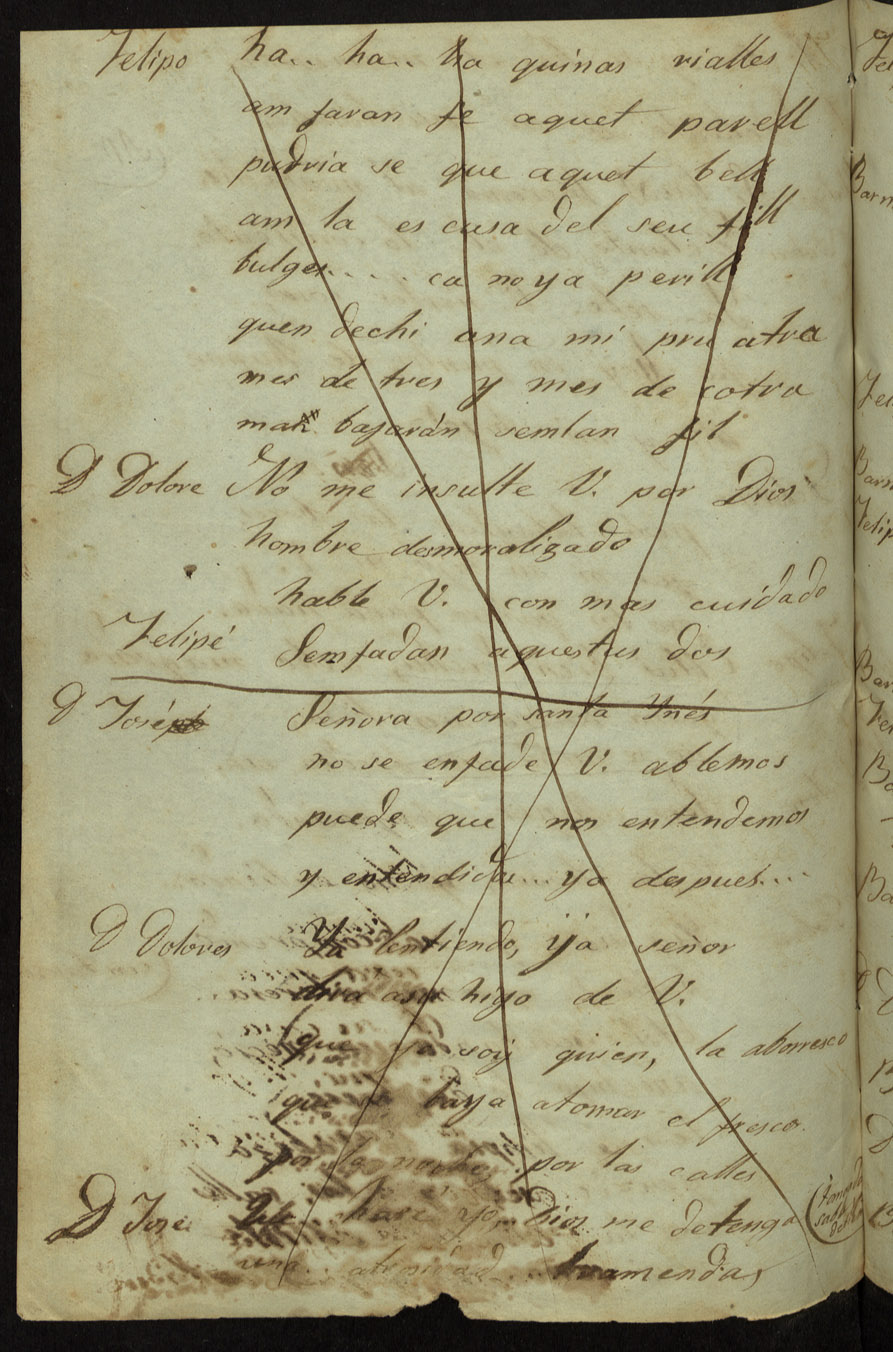 Felipo ha.. ha.. ha quinas rialles
am faran fe aquet parell
pudria se que aquet bell
am la es cusa del seu fill
bulges.... ca no ya perill
quen dechi ana mi pru atra
mes de tres y mes de cotra
man bajarán semlan fil
D Dolore No me insulte V. por Dios
hombre desmoralizado
hable V. con mas cuidado
Felipé Semfadan aquestus dos
D José Señora por santa Ynés
no se enfade V. ablemos
puede que nos entendemos
y entendidos... ya despues...
D Dolores Ya lentiendo, ya señor
dira asu higo de V.
que yo soy quien, la aborresco
que se baya atomar el fresco.
por la noche, por las calles
D José Que hare yo, Dios me detenga
una.. .. tramendas